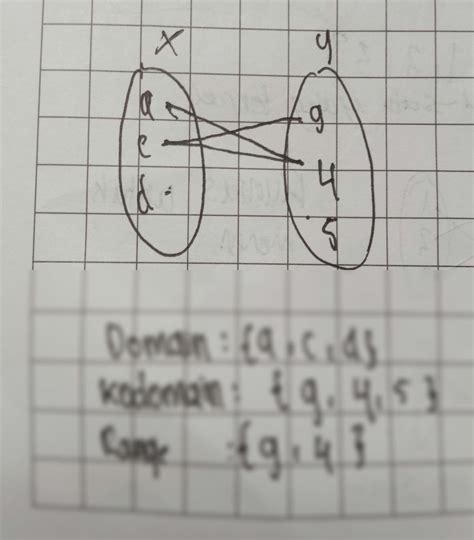 X Y
a g
c 4
d 5
Domain : {a, c, d}
Kodomain : {g, 4, 5}
Range : {g, 4}